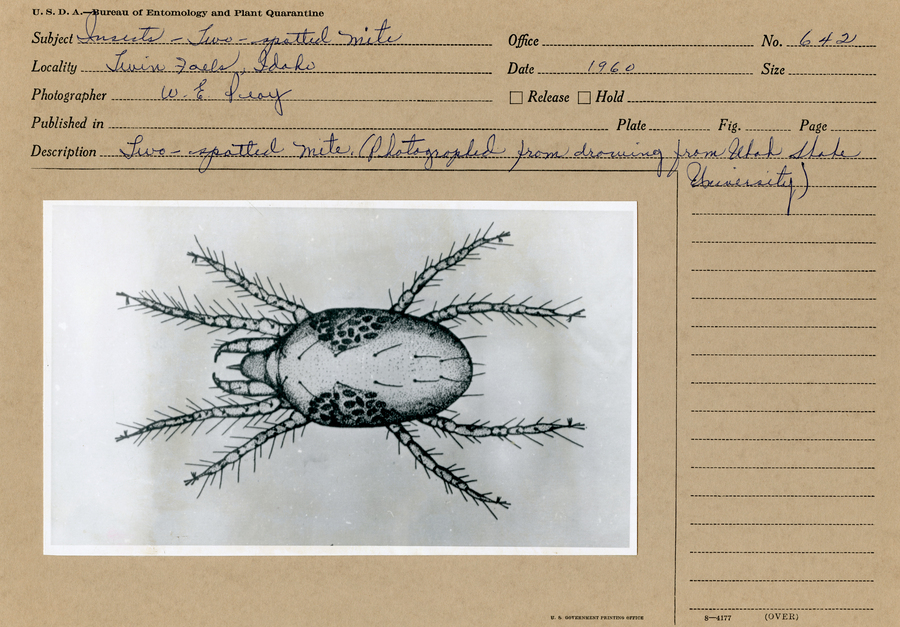 U. S. D. A.—Bureau of Entomology and Plant Quarantine
Subject Insects - Two-spotted mite Office No. 642
Locality Twin Falls, Idaho Date 1960 Size
Photographer W. E. Peay Release Hold
Published in Plate Fig. Page
Description Two-spotted mite (Photographed from drawing from Utah State
University)
U. S. GOVERNMENT PRINTING OFFICE 8—4177 (OVER)